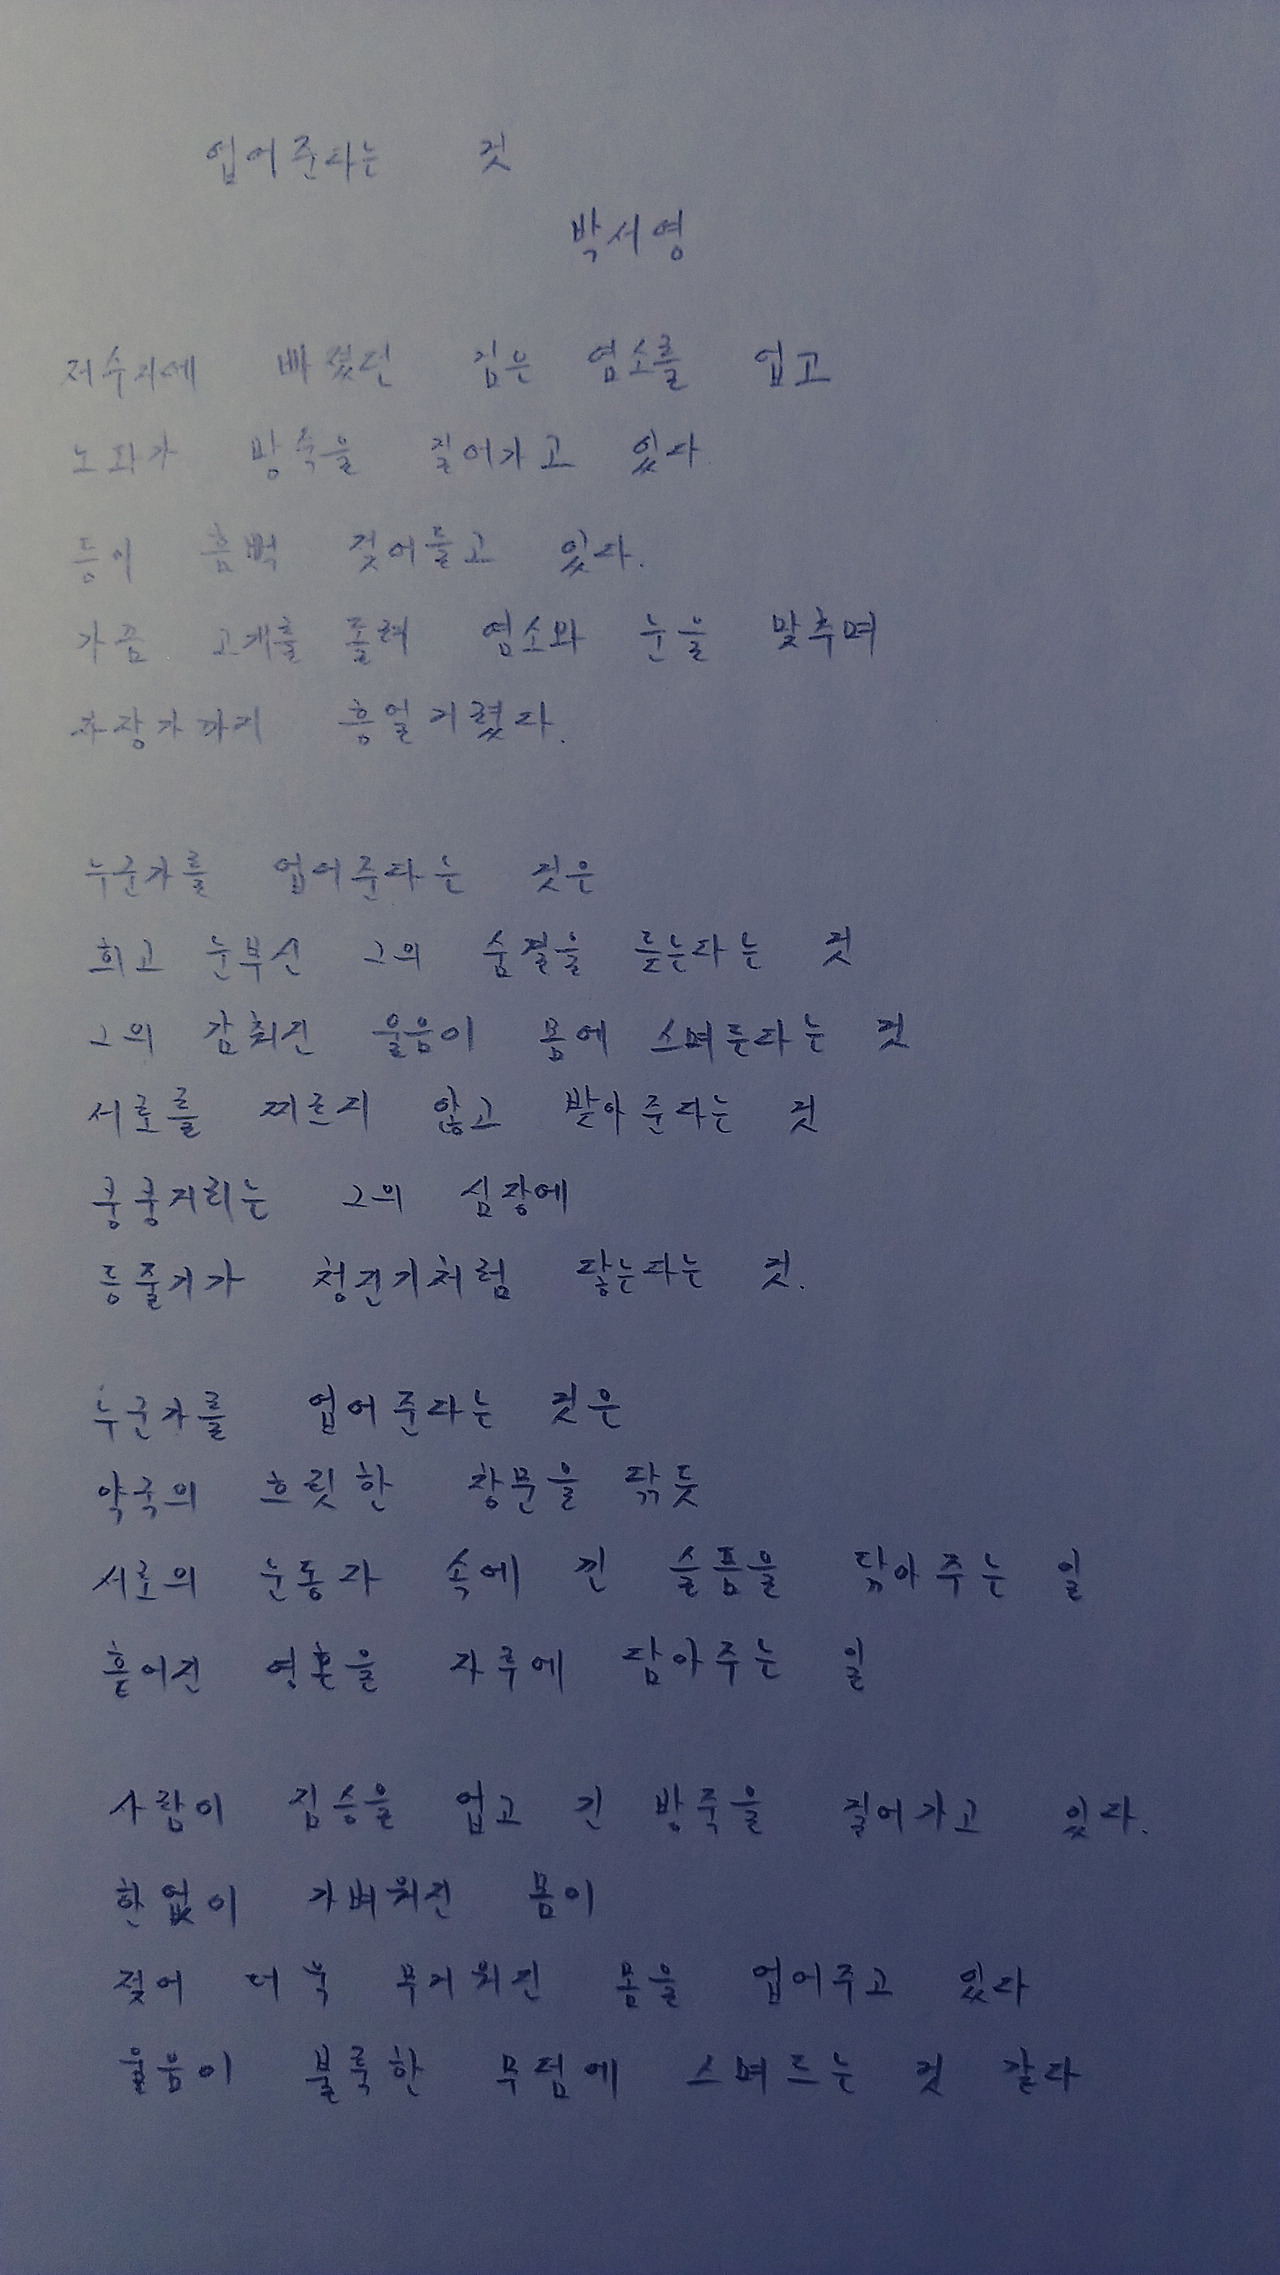 업어준다는 것
박서영
저수지에 빠졌던 검은 염소를 업고
노파가 방죽을 걸어가고 있다
등이 흠뻑 젖어들고 있다.
가끔 고개를 돌려 염소와 눈을 맞추며
자장가까지 흥얼거렸다.
누군가를 업어준다는 것은
희고 눈부신 그의 숨결을 듣는다는 것
그의 감춰진 울음이 몸에 스며든다는 것
서로를 찌르지 않고 받아준다는 것
쿵쿵거리는 그의 심장에
등줄기가 청진기처럼 닿는다는 것.
누군가를 업어준다는 것은
약국의 흐릿한 창문을 닦듯
서로의 눈동자 속에 낀 슬픔을 닦아주는 일
흩어진 영혼을 자루에 담아주는 일
사람이 짐승을 업고 긴 방죽을 걸어가고 있다.
한없이 가벼워진 몸이
젖어 더욱 무거워진 몸을 업어주고 있다
울음이 불룩한 무덤에 스며드는 것 같다